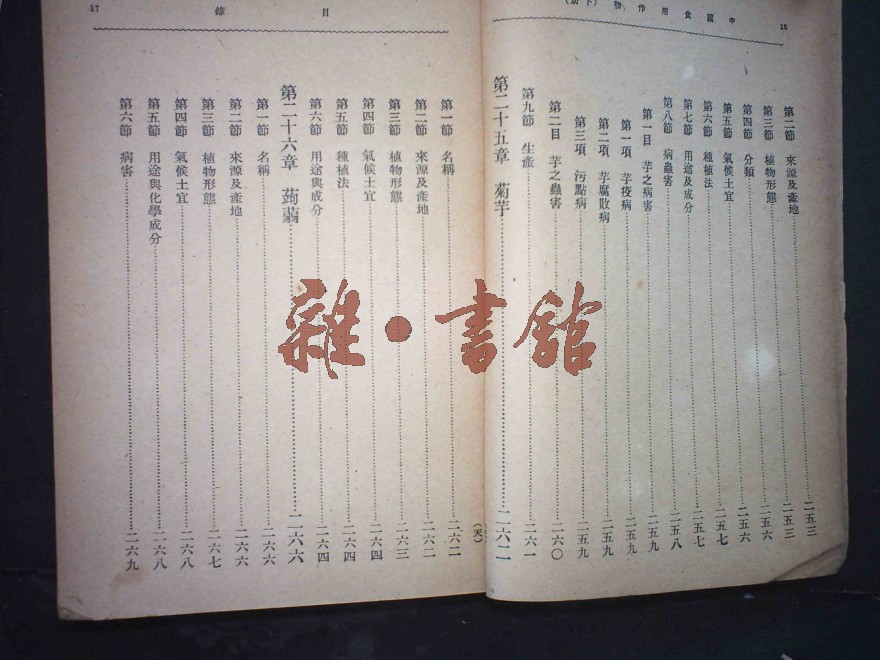 中國食用作物(下册)
第二節 來源及產地 二五三
第三節 植物形態 二五三
第四節 分類 二五六
第五節 氣候土宜 二五六
第六節 種植法 二五七
第七節 用途及成分 二五七
第八節 病蟲害 二五八
第一目 芋之病害 二五九
第一項 芋疫病 二五九
第二項 芋腐敗病 二五九
第三項 污點病 二五九
第二目 芋之蟲害 二六〇
第九節 生產 二六一
第二十五章 菊芋 二六二
(天)
17
目錄
第一節 名稱 二六二
第二節 來源及產地 二六二
第三節 植物形態 二六三
第四節 氣候土宜 二六四
第五節 種植法 二六四
第六節 用途與成分 二六四
第二十六章 蒟蒻 二六六
第一節 名稱 二六六
第二節 來源及產地 二六六
第三節 植物形態 二六七
第四節 氣候土宜 二六八
第五節 用途與化學成分 二六八
第六節 病害 二六九
雜·書館